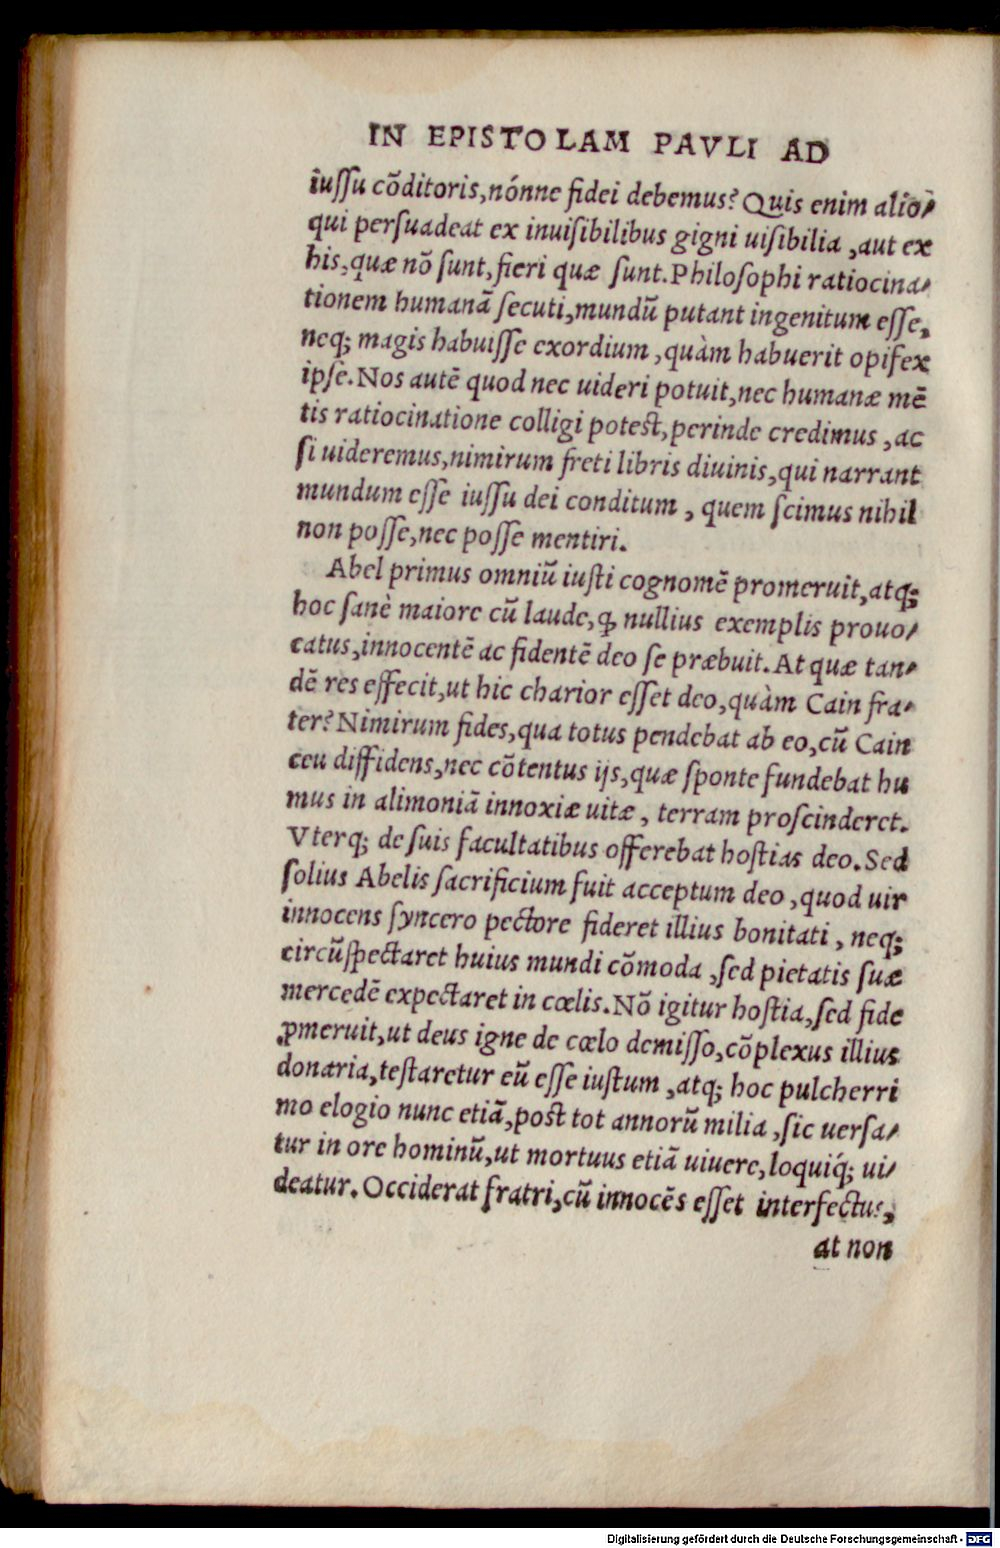 IN EPISTOLAM PAVLI AD
iussu cõditoris,nónne fidei debemus? Quis enim alio⸗
qui persuadeat ex inuisibilibus gigni uisibilia ,aut ex
his,quæ nõ sunt,fieri quæ sunt.Philosophi ratiocina⸗
tionem humanã secuti,mundũ putant ingenitum esse,
neq; magis habuisse exordium ,quàm habuerit opifex
ipse.Nos autẽ quod nec uideri potuit,nec humanæ mẽ
tis ratiocinatione colligi potest,perinde credimus ,ac
si uideremus,nimirum freti libris diuinis,qui narrant
mundum esse iussu dei conditum , quem scimus nihil
non posse,nec posse mentiri.
Abel primus omniũ iusti cognomẽ promeruit,atq;
hoc sanè maiore cũ laude,ꝙ nullius exemplis prouo⸗
catus,innocentẽ ac fidentẽ deo se præbuit.At quæ tan⸗
dẽ res effecit,ut hic charior esset deo,quàm Cain fra⸗
ter?Nimirum fides,qua totus pendebat ab eo,cũ Cain
ceu diffidens,nec cõtentus ijs,quæ sponte fundebat hu
mus in alimoniã innoxiæ uitæ , terram proscinderet.
Vterq; de suis facultatibus offerebat hostias deo.Sed
solius Abelis sacrificium fuit acceptum deo ,quod uir
innocens syncero pectore fideret illius bonitati , neq;
circũspectaret huius mundi cõmoda ,sed pietatis suæ
mercedẽ expectaret in cœlis.Nõ igitur hostia,sed fide
ꝓmeruit,ut deus igne de cœlo demisso,cõplexus illius
donaria,testaretur eũ esse iustum ,atq; hoc pulcherri
mo elogio nunc etiã,post tot annorũ milia ,sic uersa⸗
tur in ore hominũ,ut mortuus etiã uiuere,loquiq́; ui⸗
deatur.Occiderat fratri,cũ innocẽs esset interfectus,
at non
Digitalisierung gefördert durch die Deutsche Forschungsgemeinschaft - DFG